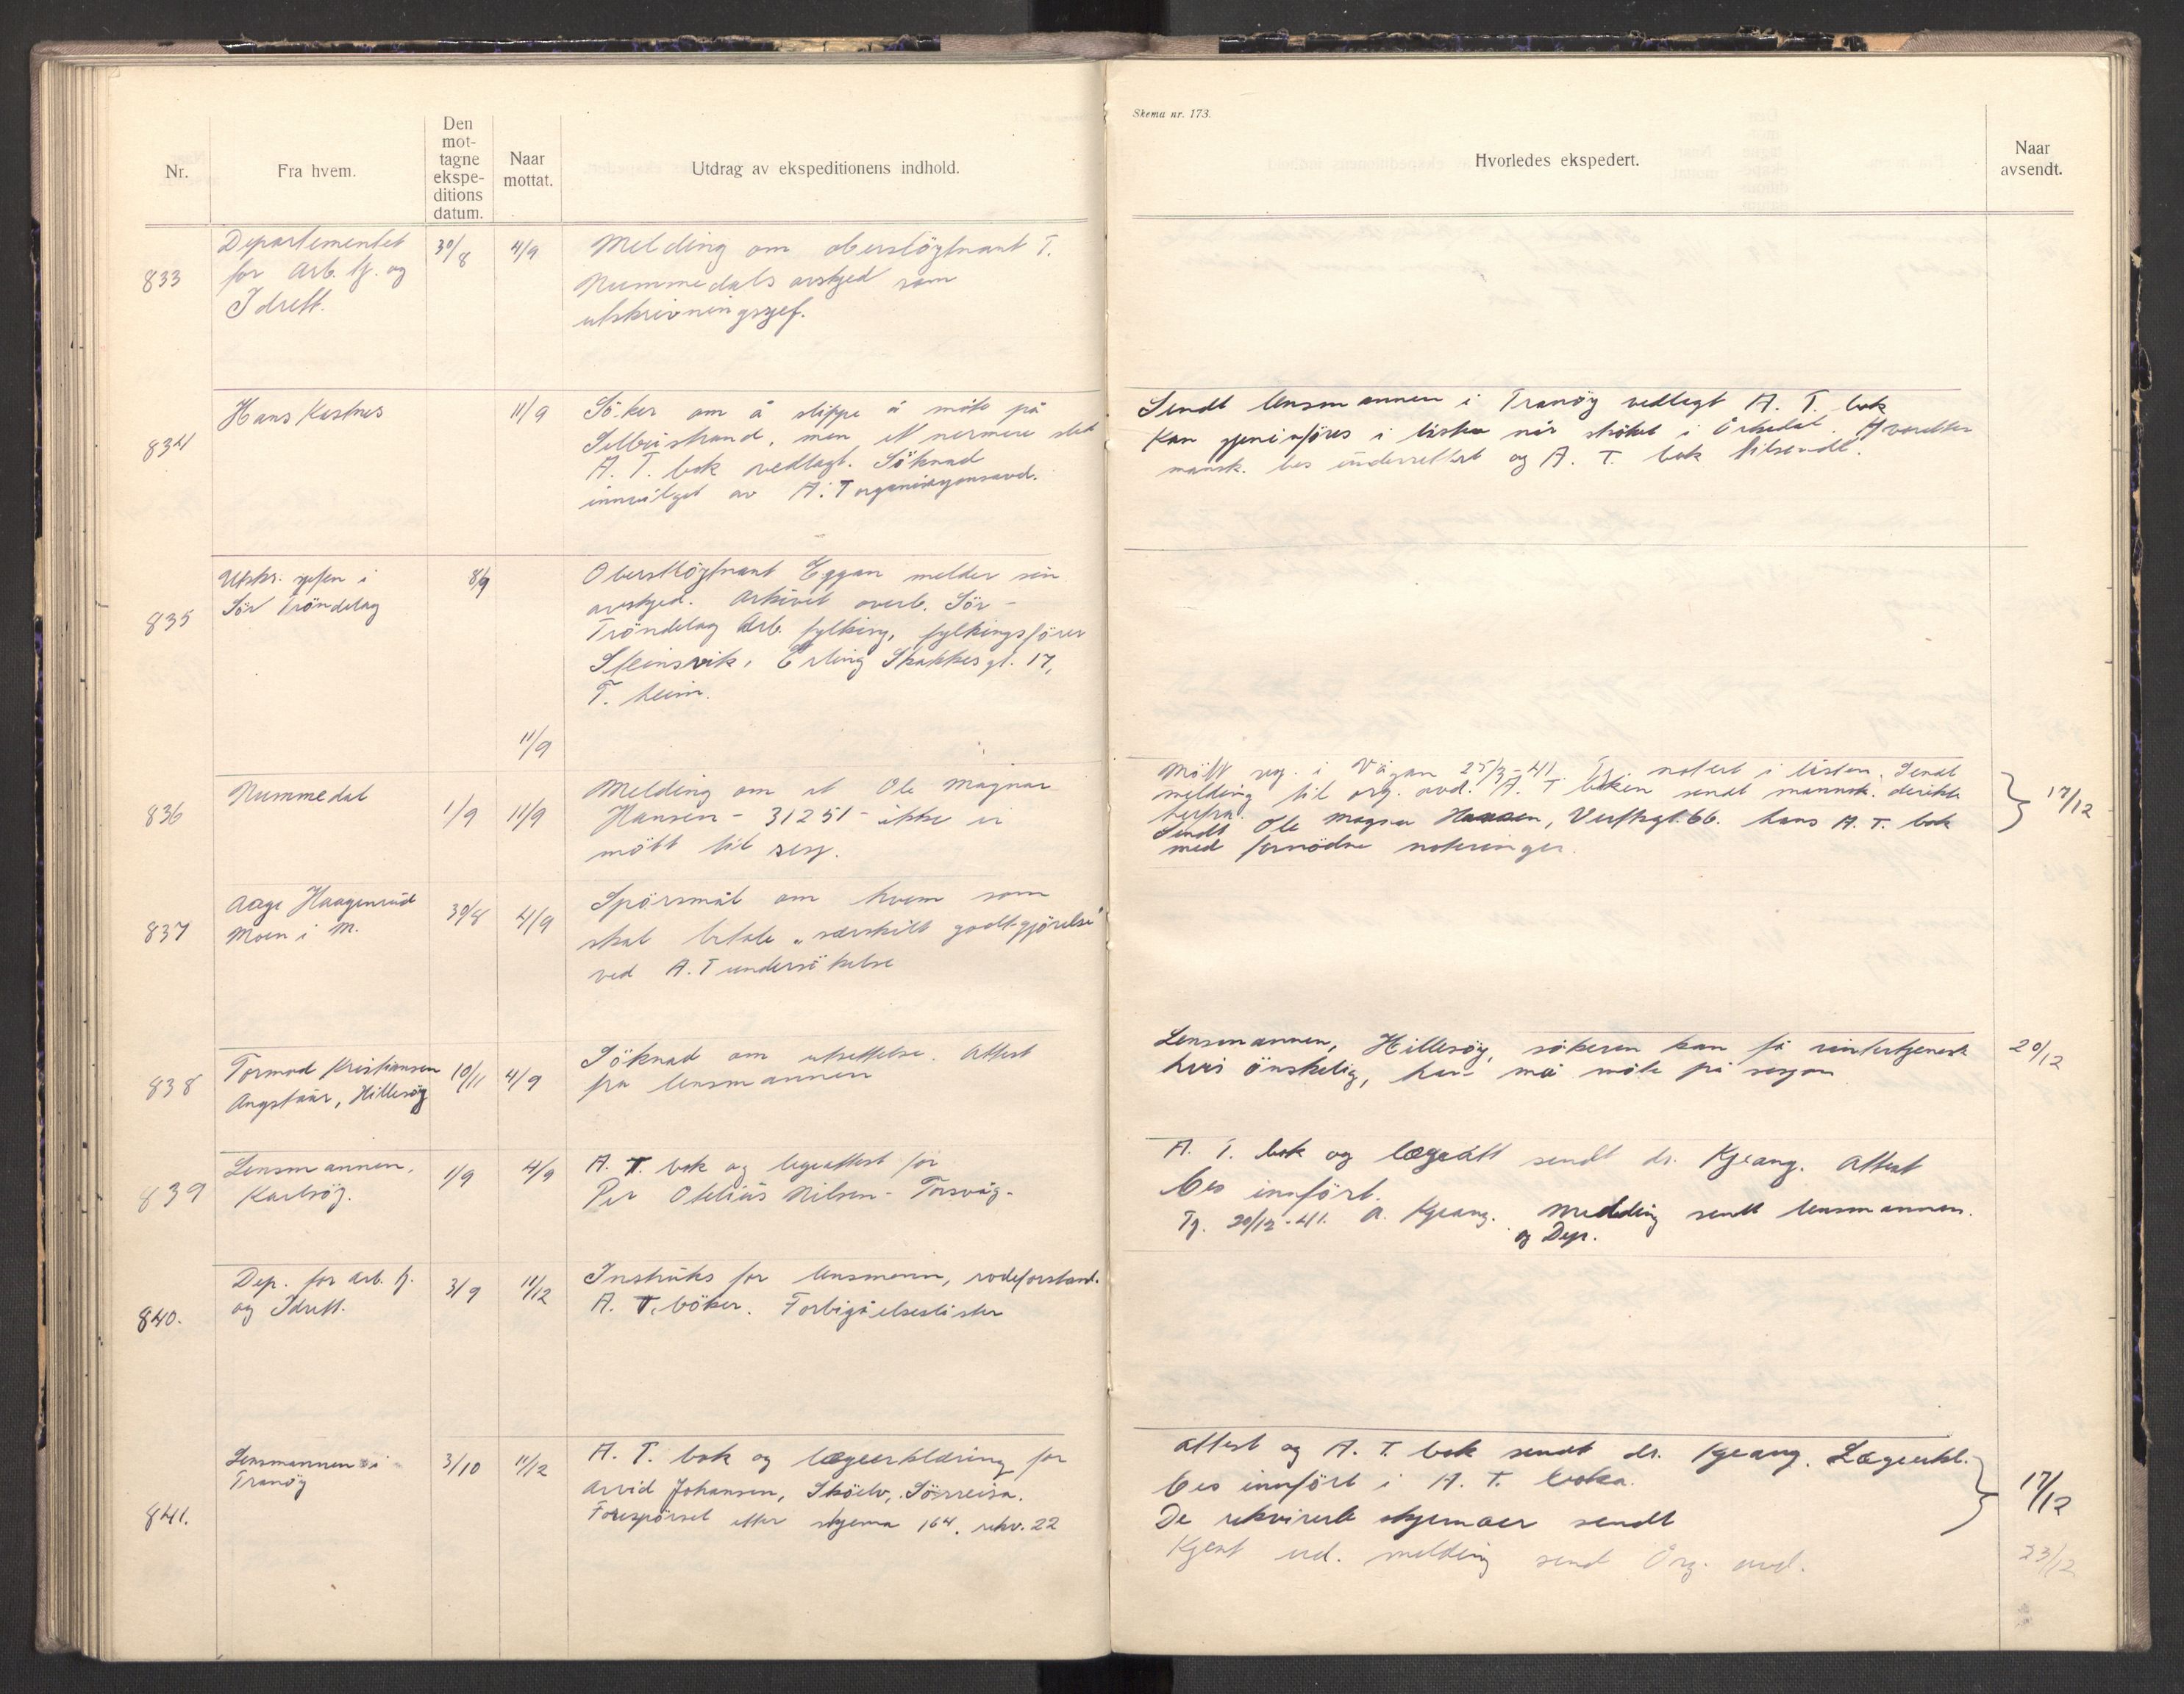 Nr.
Fra hvem.
Den
mot-
tagne
ekspe-
ditions
datum.
Naar
mottat.
Utdrag av ekspeditionens indhold.
Skema nr. 173.
Hvorledes ekspedert.
Naar
avsendt.
833
Departementet
for Arb. tj. og
Idrett.
30/8
4/9
Melding om oberstlöytnant T.
Nummedals avskjed som
utskrivningssjef.
834
Hans Kastnes
11/9
Söker om å slippe å möte på
Selbustrand, men et nermere sted
A. T. bok vedlagt. Söknad
innvilget av A. T
Sendt lensmannen i Tranöy vedlagt A. T. bok
Kan gjeninföres i listen når ströket i
mansk. bes underrettet og A. T. bok tilsendt.
835
Utskr. sjefen i
Sör Tröndelag
8/9
Oberstlöytnant Eggan melder sin
avskjed. Arkivet overl. Sör-
Tröndelag Arb. fylking, fylkingsförer
Steinsvik, Erling Skakkes gt. 17,
T. heim.
11/9
836
Nummedal
1/9
11/9
Melding om at Ole Magnar
Hansen - 31251 - ikke er
mött til sesj.
Mött sesj. i Vågan 25/3-41. notert i listen. Sendt
melding til org. avd. A. T. boken sendt mannsk. direkte
herfra.
Sendt Ole Magnar Hansen, Verftsgt. 66. hans A. T. bok
med fornödne noteringer.
17/12
837
Aage Haagenrud
Moen i M.
30/8
4/9
Spörsmål om hvem som
skal betale "særskilt godtgjörelse"
ved A. T undersökelse
838
Tormod Kristiansen
Angstaur, Hillesöy
10/11
4/9
Söknad om utsettelse. Attest
fra lensmannen
Lensmannen, Hillesöy, sökeren kan få vintertjeneste
hvis önskelig, men må möte på sesjon
20/12
839
Lensmannen,
Karlsöy.
1/9
4/9
A. T. bok og legeattest for
Per Otelius Nilsen - Torsvåg -
A. T. bok og lægeatt sendt dr. Kjeang. Attest
bes innfört.
Tj. 20/12-41. A. Kjeang. Melding sendt lensmannen.
og Dep.
840.
Dep. for Arb. tj.
og Idrett.
3/9
11/12
Instruks for lensmenn, rodeforstand.
A. T. böker. Forbigåelseslister
841.
Lensmannen i
Tranöy
3/10
11/12
A. T. bok og lægeerklæring for
Arvid Johansen, Sköelv, Sörreisa.
Forespörsel etter skjema 164, rekv. 22
Attest og A. T. bok sendt dr. Kjeang. Lægeerkl.
bes innfört i A. T. boka.
De rekvirerte skjemaer sendt
17/12
Kjent ud. melding send Org. avd.
23/12